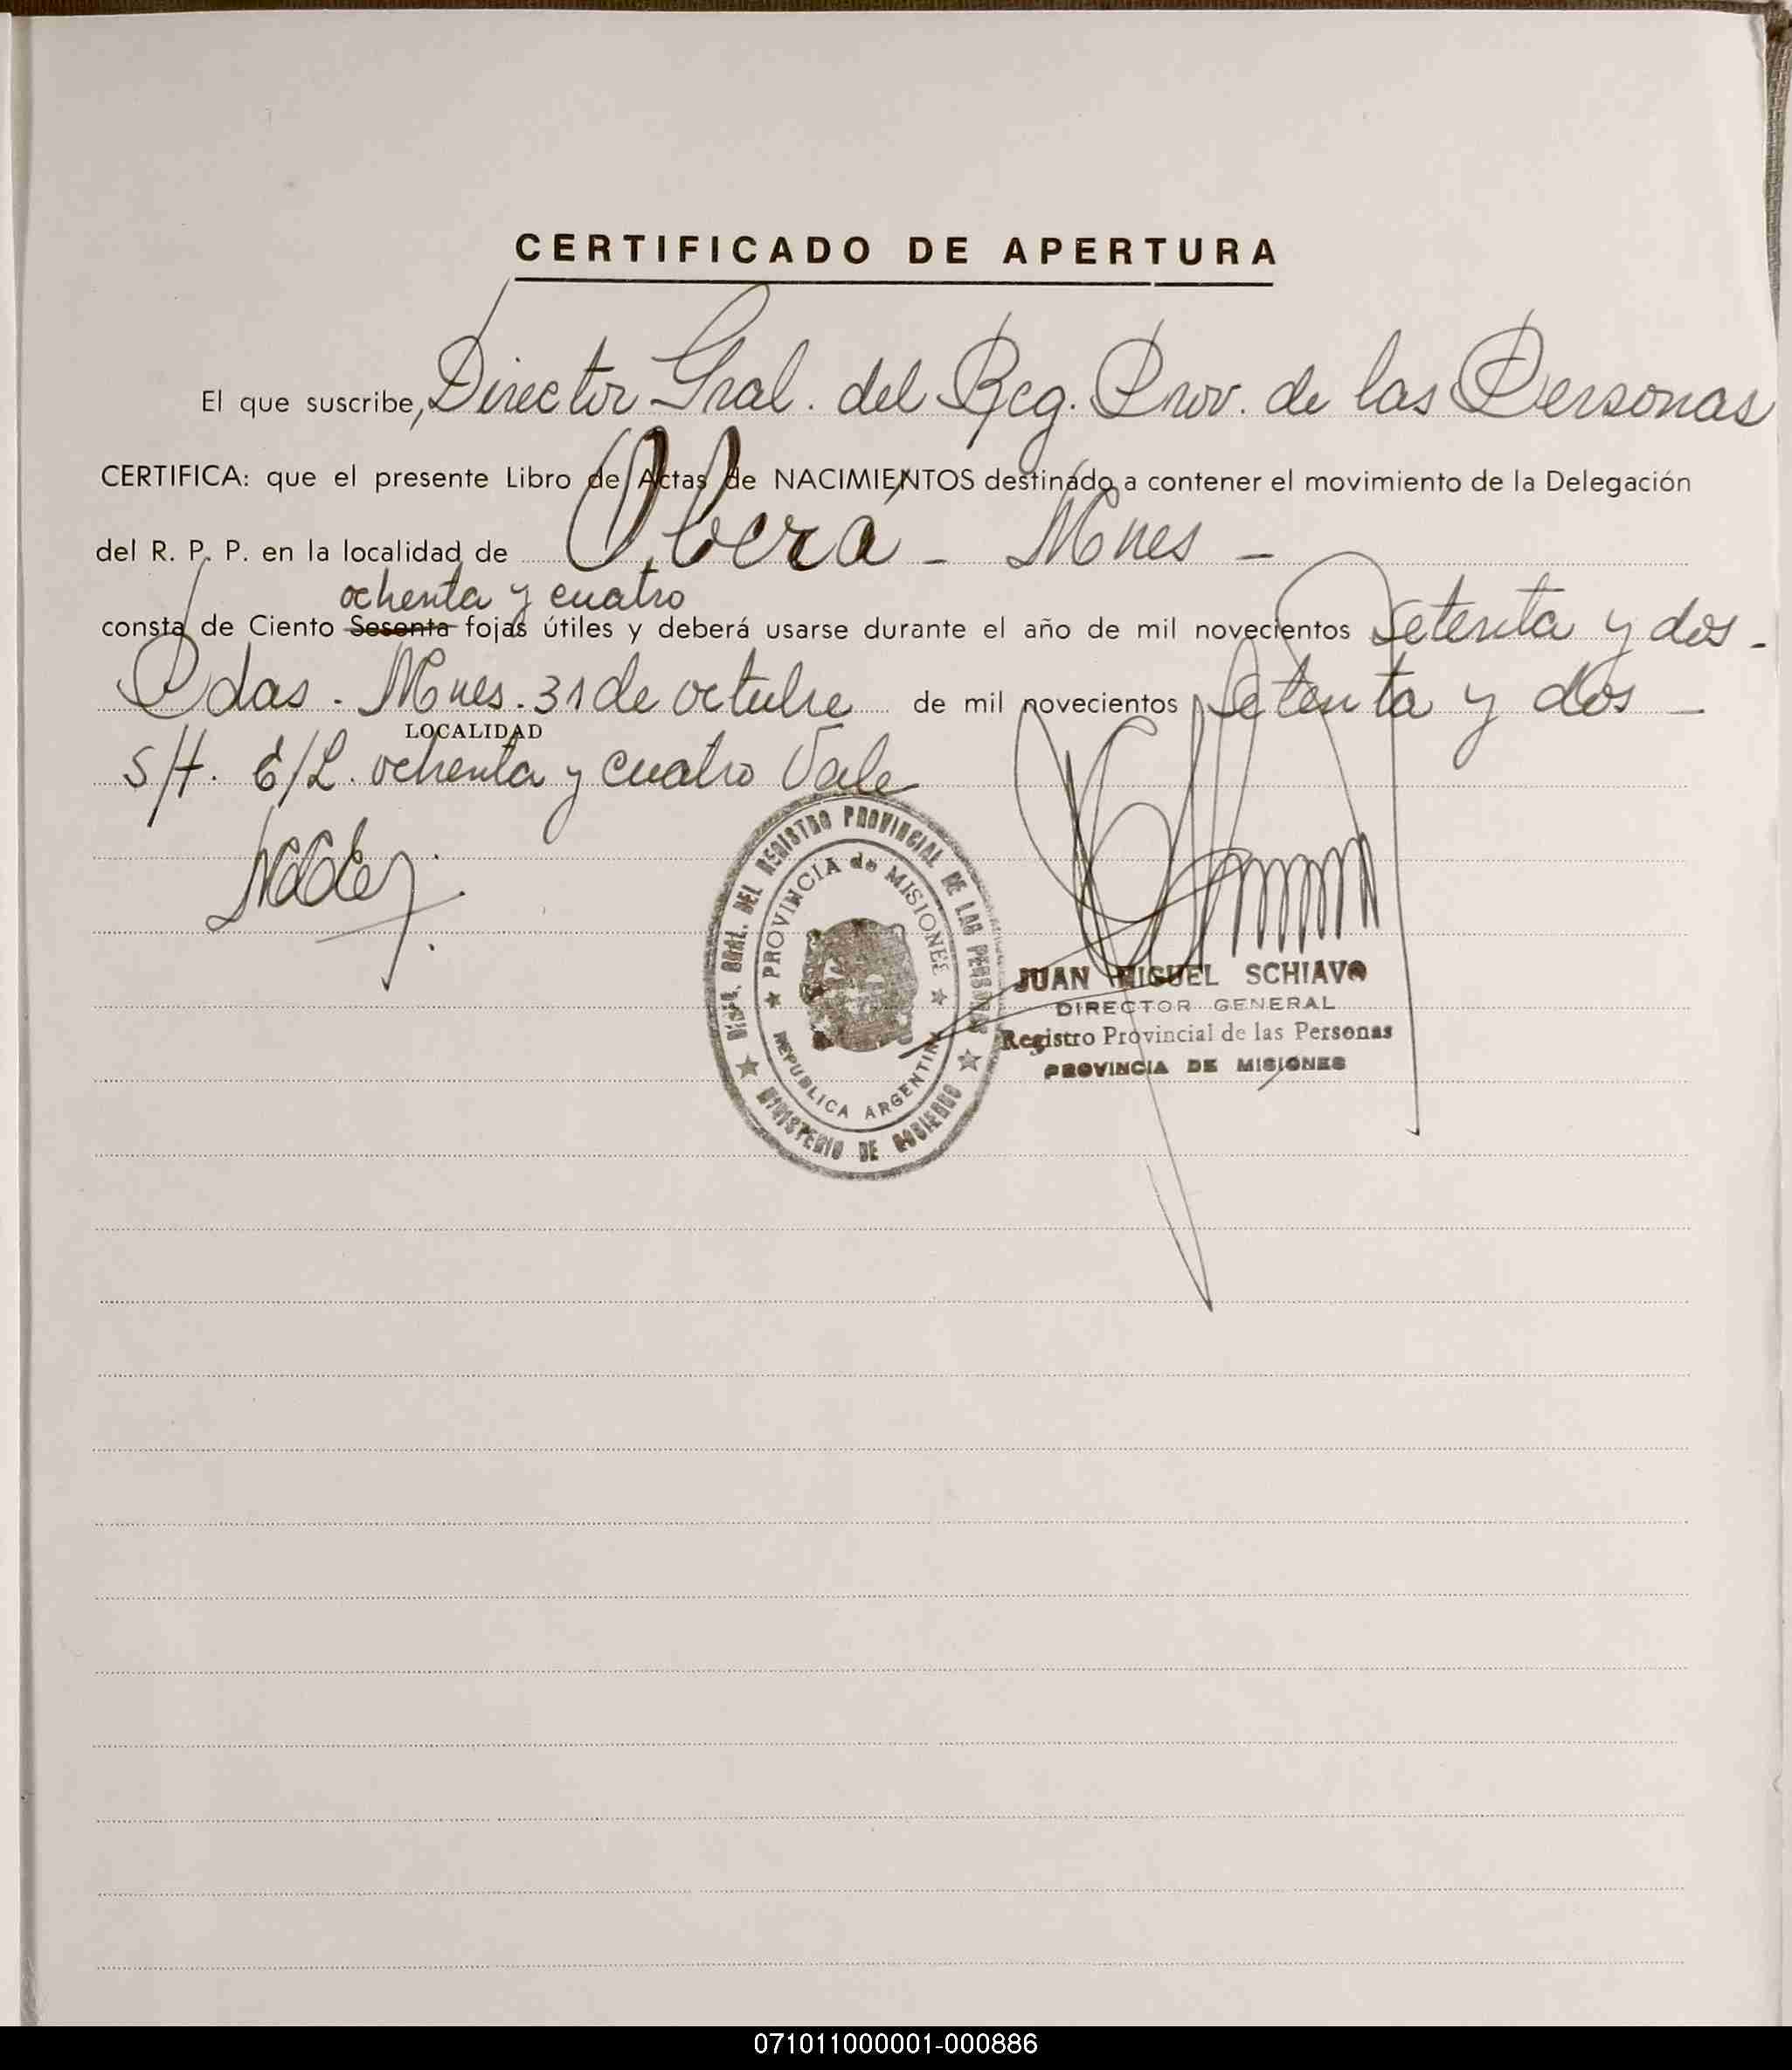 CERTIFICADO DE APERTURA
El que suscribe, Director Gral. del Reg. Prov. de las Personas
CERTIFICA: que el presente Libro de Actas de NACIMIENTOS destinado a contener el movimiento de la Delegación
del R. P. P. en la localidad de Oberá - Mnes -
ochenta y cuatro
consta de Ciento Sesenta fojas útiles y deberá usarse durante el año de mil novecientos Setenta y dos -
Pdas. Mnes. 31 de octubre de mil novecientos Setenta y dos -
LOCALIDAD
S/t. E/L. ochenta y cuatro Vale
DIREC. GRAL. DEL REGISTRO PROVINCIAL DE LAS PERSONAS
PROVINCIA de MISIONES
REPUBLICA ARGENTINA
MINISTERIO DE GOBIERNO
JUAN MIGUEL SCHIAVO
DIRECTOR GENERAL
Registro Provincial de las Personas
PROVINCIA DE MISIONES
071011000001-000886